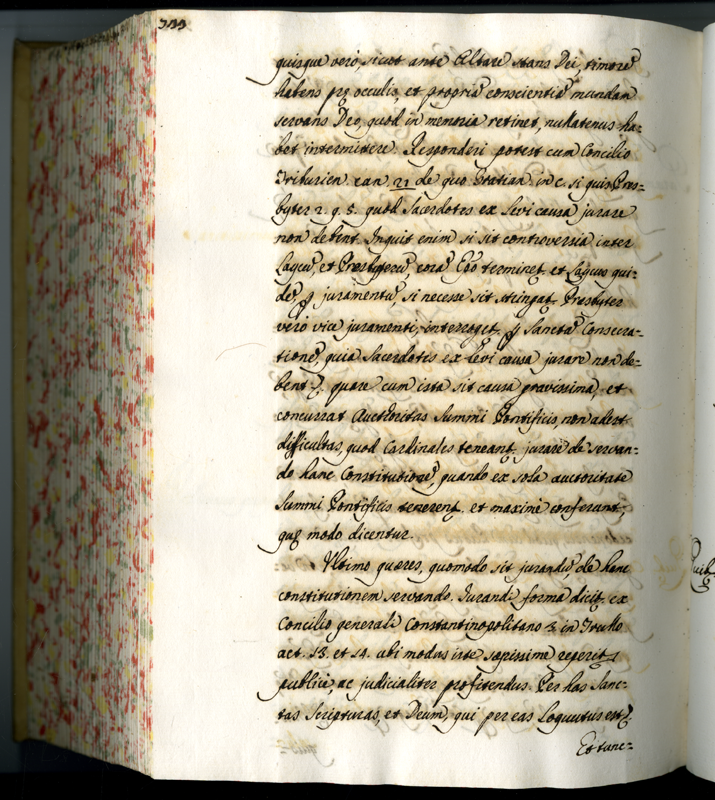 quisque vero, sicut ante Altare stans Dei, timore
habens prę occulis, et propriã conscientiã mundam
servans Deo, quod in memoria retinet, nullatenus ha-
bet intermittere. Responderi potest cum Concilio
Triburien. can. 21 de quo Gratian. in c. si quis Pres=
byter 2. q. 5. quod Sacerdotes ex levi causa jurare
non debent. Inquit enim si sit controversia inter
Laycũ, et Presbyterũ, corã Epõ terminet, et Laycus qui-
dẽ p juramentũ, si necesse sit stringat. Presbyter
verò vice juramenti, interroget p Sanctã Consecra-
tionẽ, quia Sacerdotes ex levi causa jurare non de-
bent. quare cum ista sit causa gravissima, et
concurrat Auctoritas Summi Pontificis, non adest
difficultas, quod Cardinales teneant jurare de servan-
do hanc Constitutionẽ, quando ex sola auctoritate
Summi Pontificis tenerent. et maximè conferant,
quę modo dicentur.
Ultimo quæres, quomodo sit jurandũ, de hanc
constitutionem servando. Jurandi forma dicit ex
Concilio generali Constantinopolitano 3. in Trullo
act. 13. et 14. ubi modus iste sæpissimè reperit
publicè, ac judicialiter profitendus. Per has Sanc-
tas Scripturas, et Deum, qui per eas loquutus est
Et tunc=